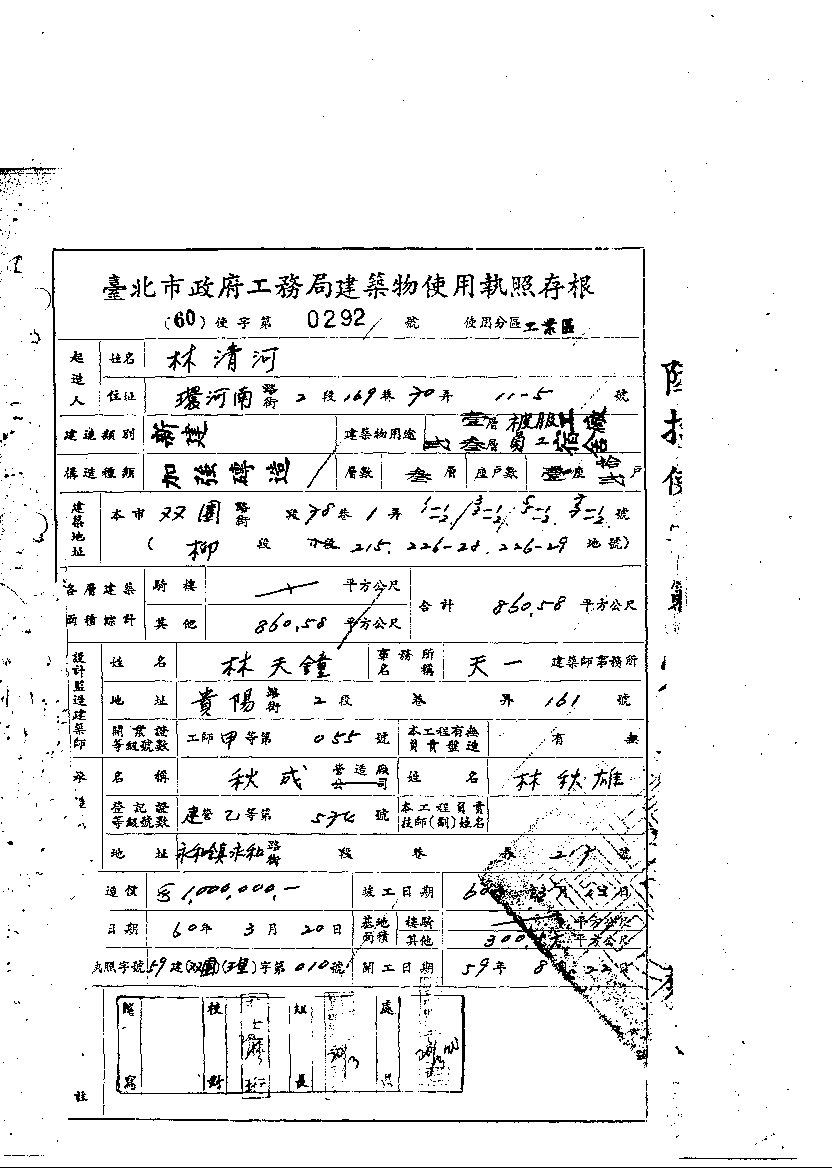 臺北市政府工務局建築物使用執照存根
(60) 使字第 0292 號 使用分區 工業區
起造人 姓名 林清河
住址 環河南 路街 2 段 169 巷 70 弄 11-5 號
建造類別 新建 建築物用途 壹層被服工廠 貳叁層員工宿舍
構造種類 加強磚造 層數 叁層 座戶數 壹座 貳拾戶
建築地址 本市 双園 路街 段 78 巷 1 弄 號
( 柳 段 小段 215. 226-28. 226-29 地號)
各層建築面積綜計 騎樓 平方公尺 合計 860.58 平方公尺
其他 860.58 平方公尺
設計監造建築師 姓名 林天鐘 事務所名稱 天一 建築師事務所
地址 貴陽 路街 2 段 巷 弄 161 號
開業證等級號數 工師甲等第 055 號 本工程有無負責監造 有 無
承造 名稱 秋成 營造廠公司 姓名 林秋雄
登記證等級號數 建營乙等第 574 號 本工程負責技師(副)姓名
地址 永和鎮永和 路街 段 巷 弄 217 號
造價 1,000,000.- 竣工日期 60 月 日
日期 60年 3月 20日 基地面積 樓騎 平方公尺
其他 300. 平方公尺
執照字號 59建(双園)字第 010號 開工日期 59年 8月 22日
註 繕寫 校對 組長 處